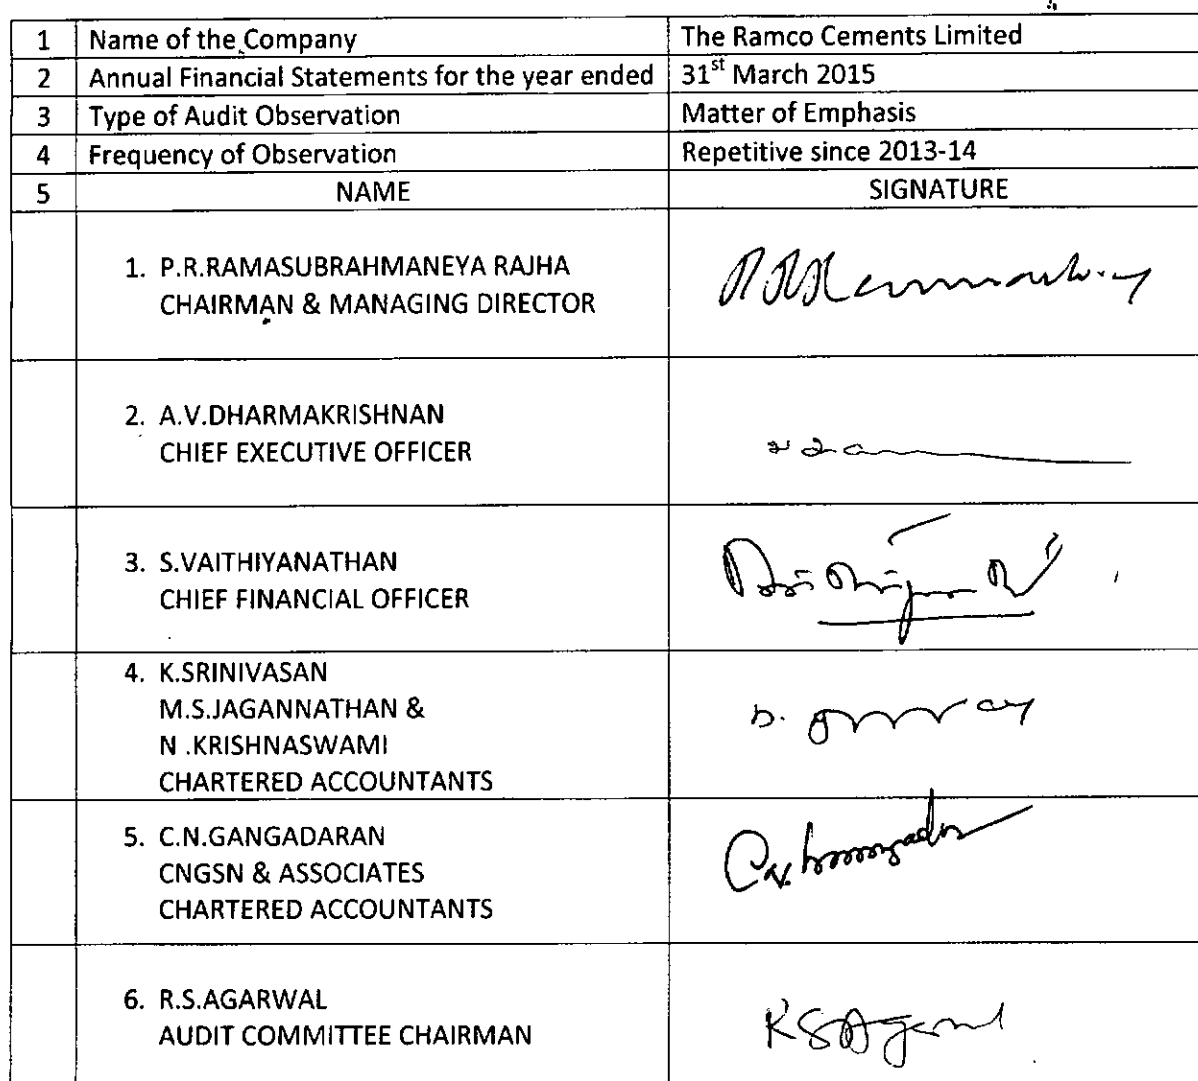 1 Name of the Company The Ramco Cements Limited
2 Annual Financial Statements for the year ended 31st March 2015
3 Type of Audit Observation Matter of Emphasis
4 Frequency of Observation Repetitive since 2013-14
5 NAME SIGNATURE
1. P.R.RAMASUBRAHMANEYA RAJHA
CHAIRMAN & MANAGING DIRECTOR
2. A.V.DHARMAKRISHNAN
CHIEF EXECUTIVE OFFICER
3. S.VAITHIYANATHAN
CHIEF FINANCIAL OFFICER
4. K.SRINIVASAN
M.S.JAGANNATHAN &
N .KRISHNASWAMI
CHARTERED ACCOUNTANTS
5. C.N.GANGADARAN
CNGSN & ASSOCIATES
CHARTERED ACCOUNTANTS
6. R.S.AGARWAL
AUDIT COMMITTEE CHAIRMAN